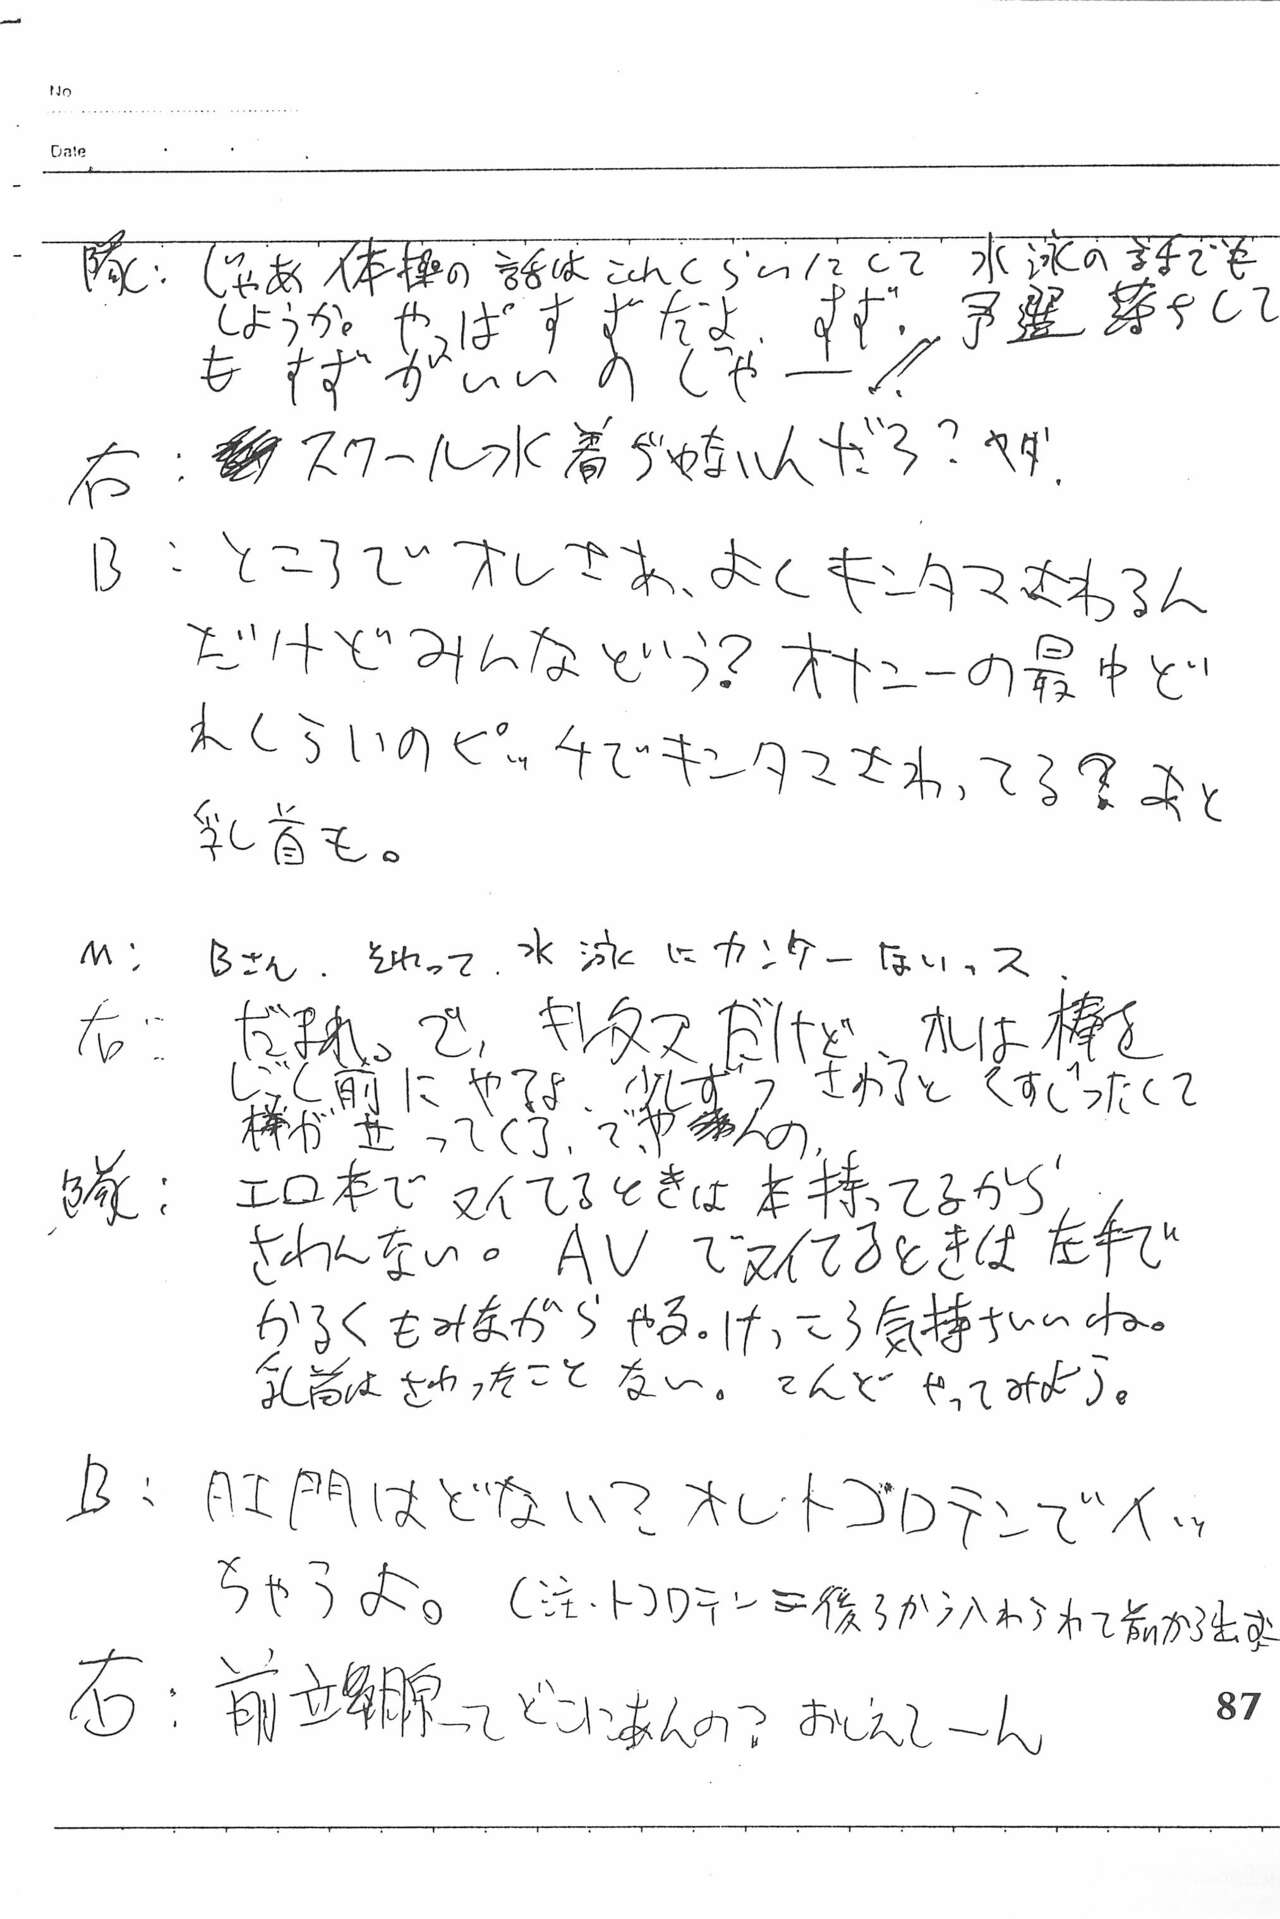 No
Date
隊: じゃあ体操の話はこれくらいにして 水泳の話でも
しようか。やっぱすずだよ、すず。予選落ちして
もすずがいいのじゃー!!
右: スクール水着ぢゃないんだろ?ヤダ.
B: ところでオレさあ、よくキンタマさわるん
だけどみんなどう?オナニーの最中ど
れくらいのピッチでキンタマさわってる?あと
乳首も。
M: Bさん. それって. 水泳にカンケーないっス.
右: だまれ。で、キンタマだけど、オレは棒を
しごく前にやるよ.少しずつさわるとくすぐったくて
棒がせってくる、で、や んの、
隊: エロ本でヌイてるときは本持ってるから
さわんない。AVでヌイてるときは左手で
かるくもみながらやる。けっこう気持ちいいね。
乳首はさわったことない。こんどやってみよう。
B: 肛門はどない?オレ、トコロテンでイッ
ちゃうよ。(注・トコロテン=後ろから入れられて前から出す
右: 前立腺ってどこにあんの?おしえてーん
87